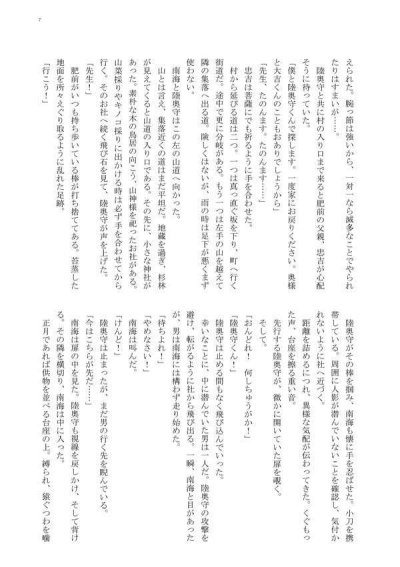 7
えられた。腕っ節は強いから、一対一なら滅多なことでやられ
たりはすまいが……。
陸奥守と共に村の入り口まで来ると肥前の父親、忠吉が心配
そうに待っていた。
「僕と陸奥守くんで探します。一度家にお戻りください。奥様
と大吉くんのこともおありでしょうから」
「先生、たのんます。たのんます……」
忠吉は菩薩にでも祈るように手を合わせた。
村から延びる道は二つ。一つは真っ直ぐ坂を下り、町へ行く
街道だ。途中で更に分岐がある。もう一つは左手の山を越えて
隣の集落へ出る道。険しくはないが、雨の時は足下が悪くまず
使わない。
南海と陸奥守はこの左の山道へ向かった。
山とは言え、集落近くの道はまだ平坦だ。地蔵を過ぎ、杉林
が見えてくると山道の入り口である。その先に、小さな神社が
あった。素朴な木の鳥居の向こう、山神様を祀ったお社がある。
山菜採りやキノコ採りに出かける時は必ず手を合わせてから
行く、そのお社へ続く飛び石を見て、陸奥守が声を上げた。
「先生！」
肥前がいつも持ち歩いている棒が打ち捨ててある。苔蒸した
地面を所々えぐり取るように乱れた足跡。
「行こう！」
陸奥守がその棒を掴み、南海も懐に手を忍ばせた。小刀を携
帯している。周囲に人影が潜んでいないことを確認し、気付か
れないように社へ近づく。
距離を詰めるにつれ、異様な気配が伝わってきた。くぐもっ
た声、台座を擦る重い音。
先行する陸奥守が、微かに開いていた扉を覗く。
そして。
「おんどれ！　何しちゅうがか！」
「陸奥守くん！」
陸奥守は止める間もなく飛び込んでいった。
幸いなことに、中に潜んでいた男は一人だ。陸奥守の攻撃を
避け、転がるように社から飛び出る。一瞬、南海と目があった
が、男は南海には構わず走り始めた。
「待ちよれ！」
「やめなさい！」
南海は叫んだ。
「けんど！」
陸奥守は止まったが、まだ男の行く先を睨んでいる。
「今はこちらが先だ……」
南海は扉の中を見た。陸奥守も視線を戻しかけ、そして背け
る。その隣を横切り、南海は中に入った。
正月であれば供物を並べる台座の上。縛られ、猿ぐつわを噛